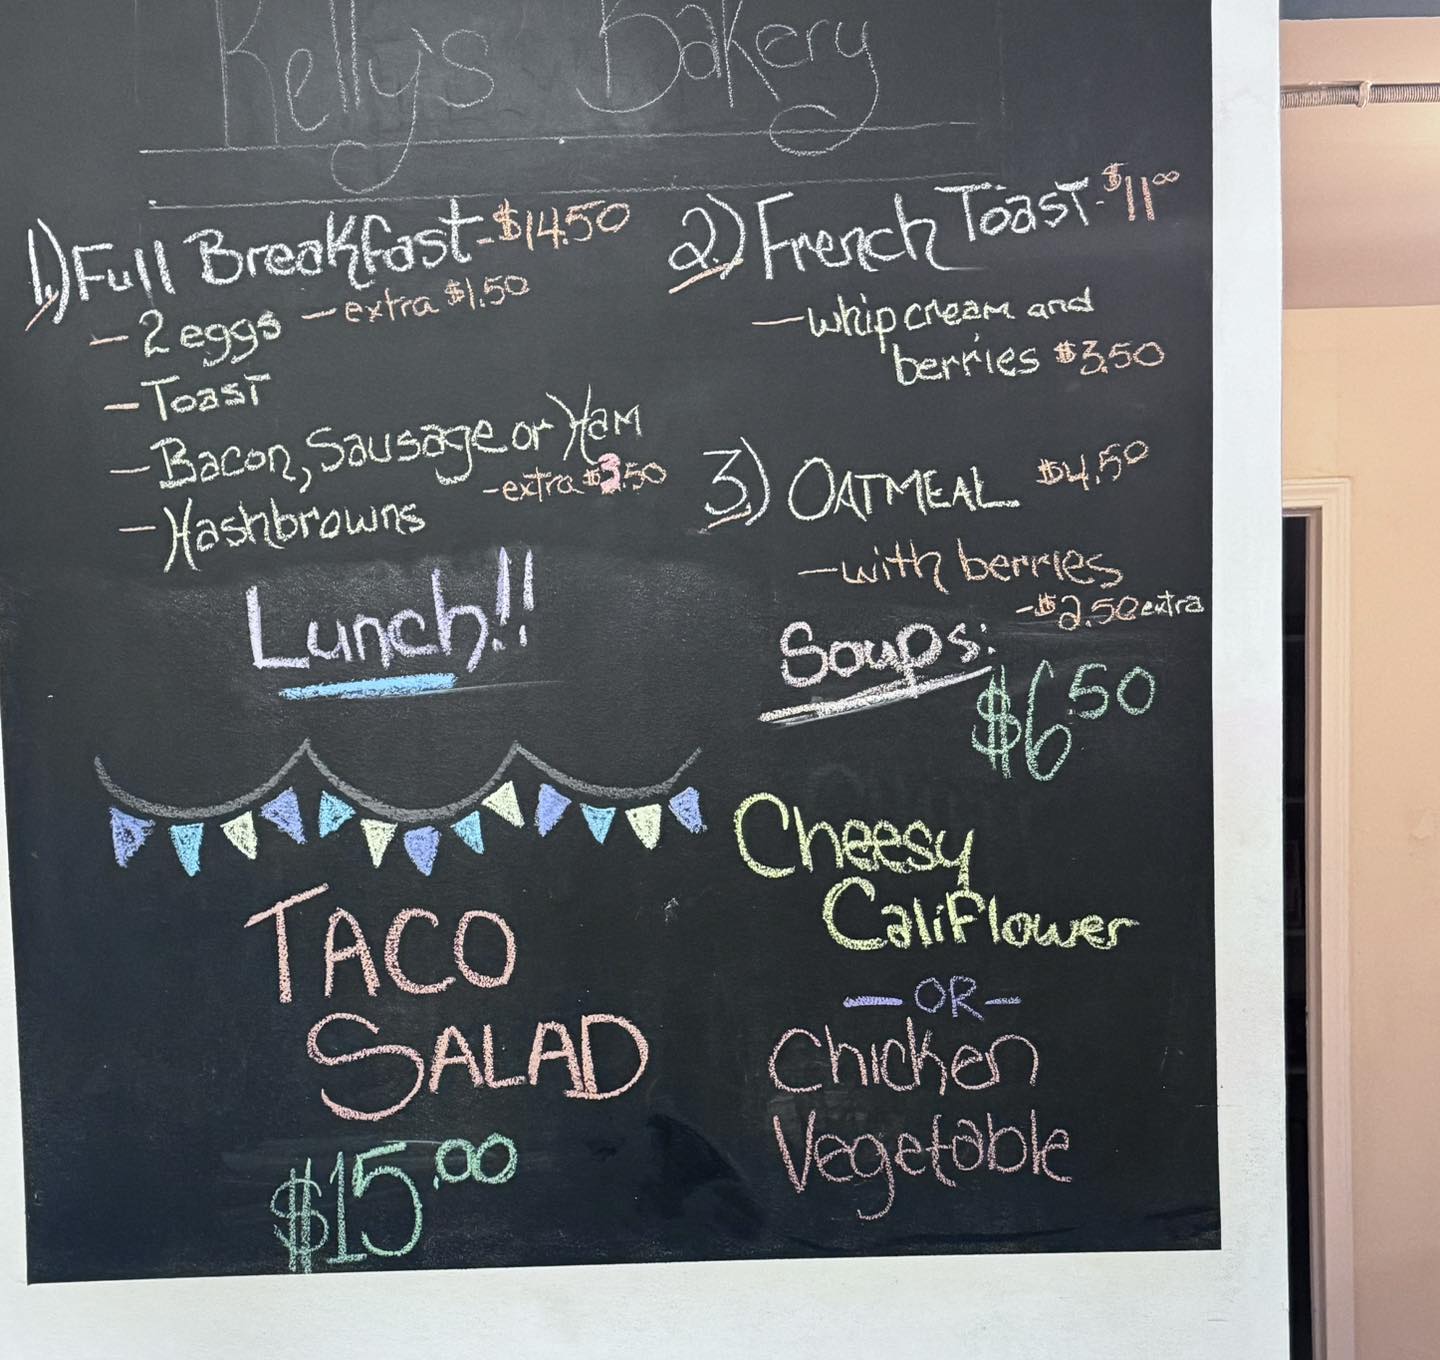 Kelly's Bakery
1.) Full Breakfast - $14.50
- 2 eggs - extra $1.50
- Toast
- Bacon, Sausage or Ham
- extra $3.50
- Hashbrowns
2.) French Toast - $11.00
- whip cream and
berries $3.50
3.) OATMEAL $4.50
- with berries
- $2.50 extra
Lunch!!
TACO
SALAD
$15.00
Soups:
$6.50
Cheesy
Califlower
- OR -
Chicken
Vegetable